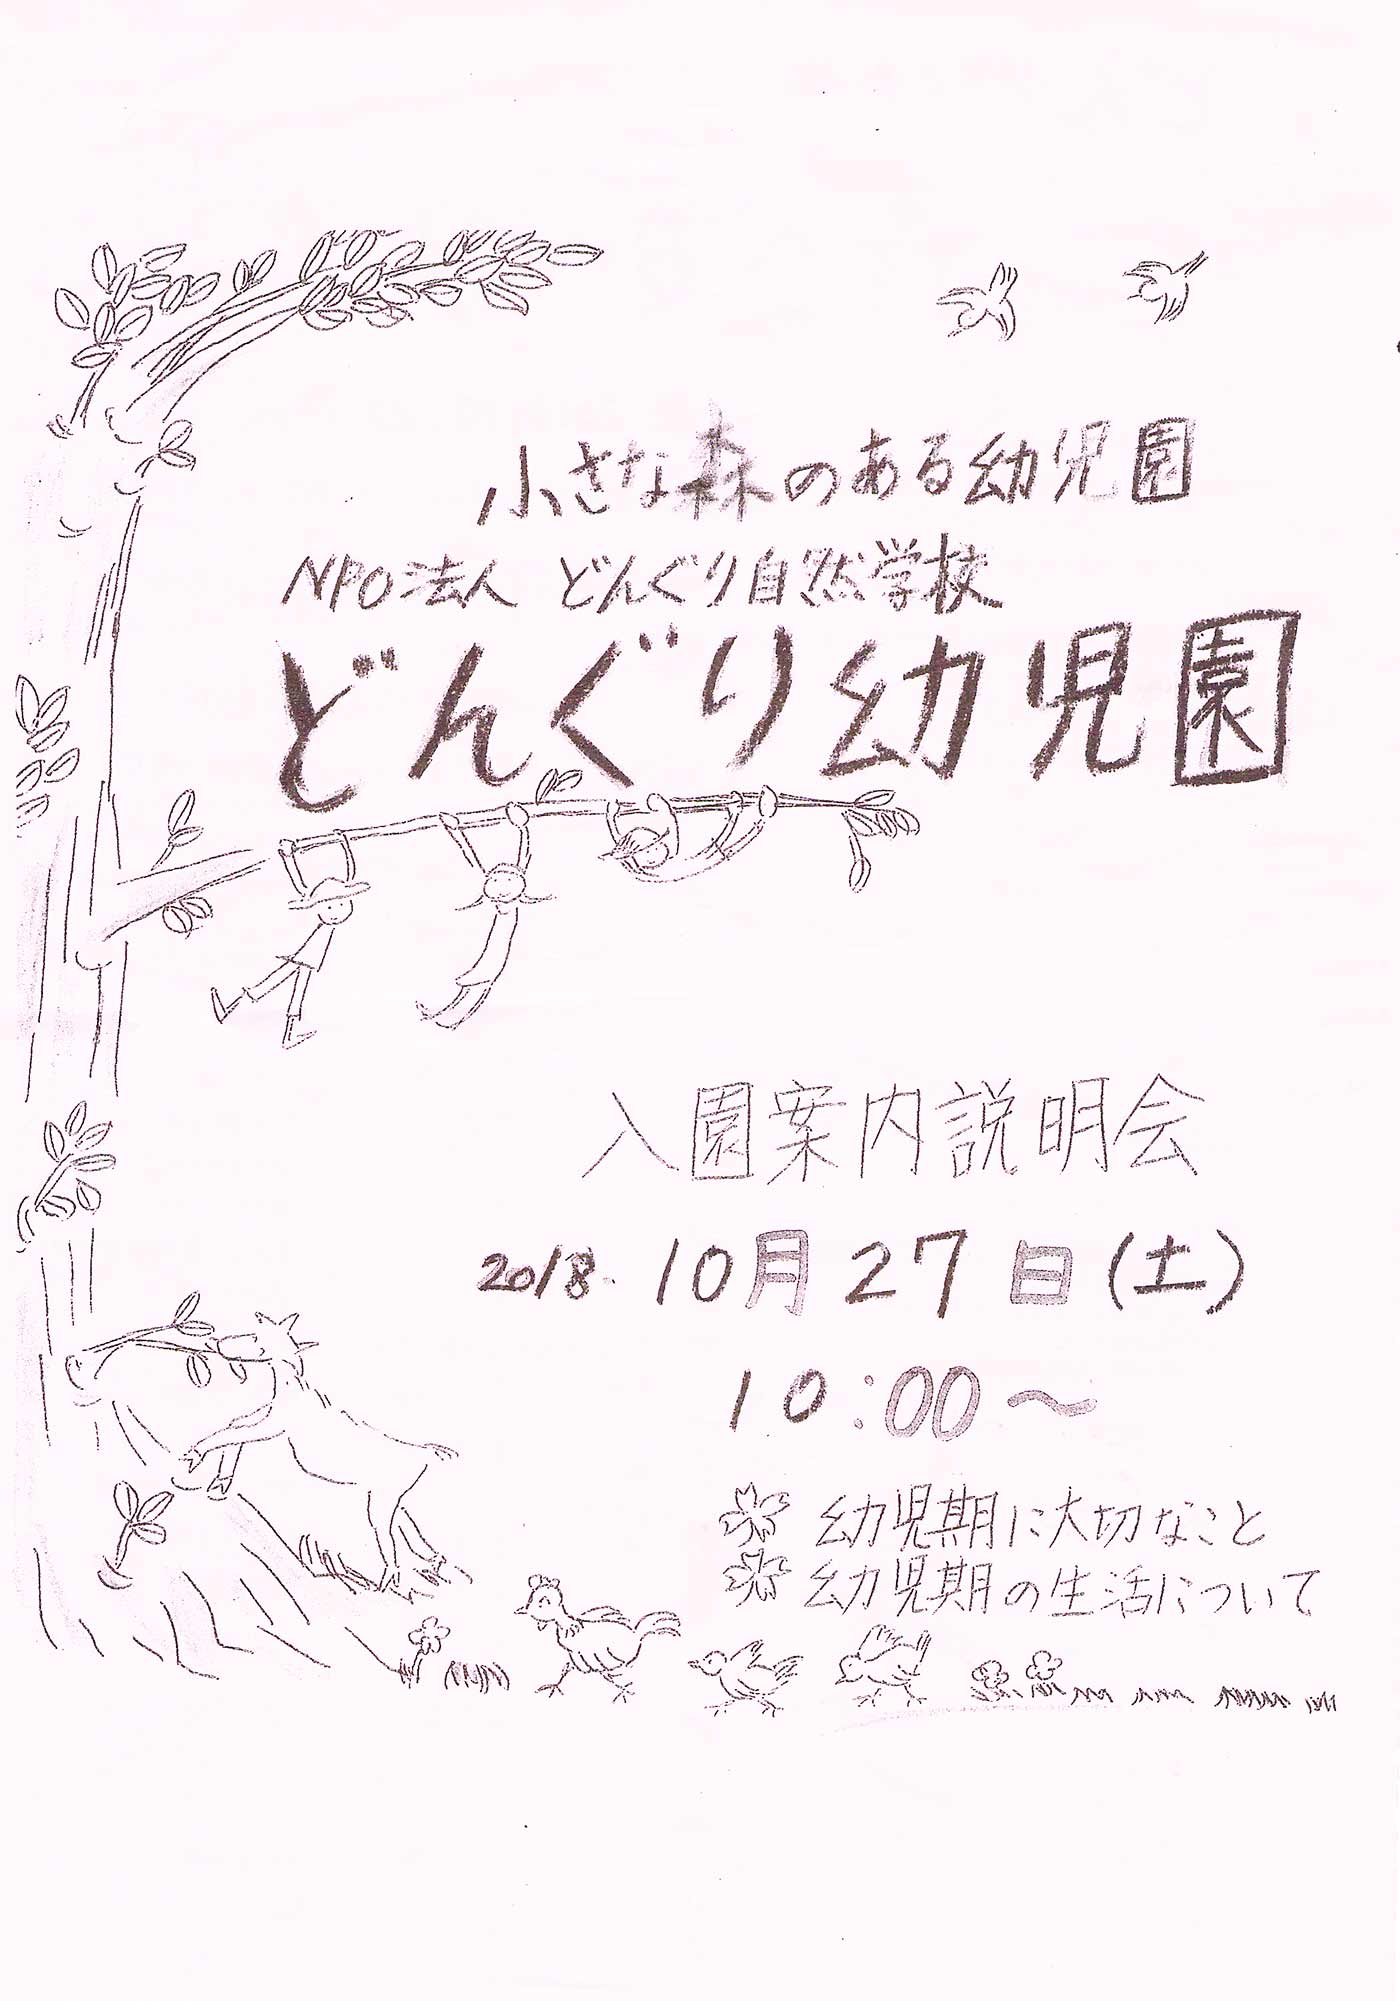 小さな森のある幼児園
NPO法人 どんぐり自然学校
どんぐり幼児園
入園案内説明会
2018. 10月27日(土)
10:00〜
幼児期に大切なこと
幼児期の生活について